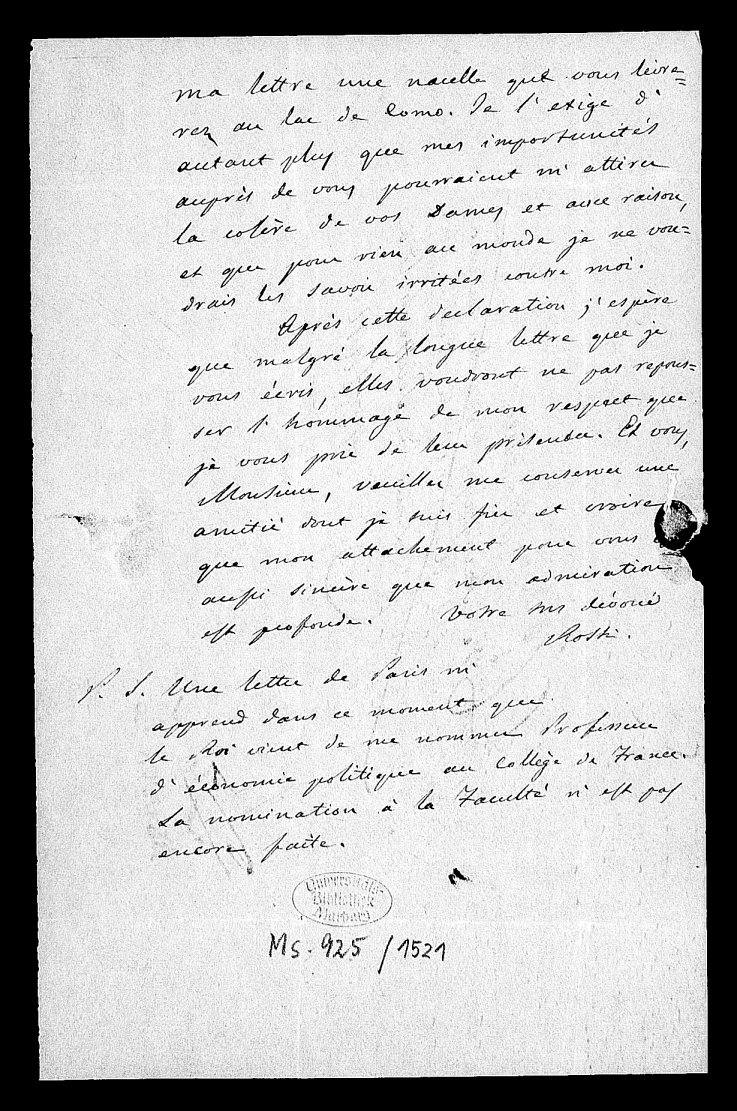 ma lettre une nacelle que vous livre=
rez au lac de Como. Je l'exige d'
autant plus que mes importunités
auprès de vous pourraient m'attirer
la colère de vos Dames, et avec raison,
et que pour rien au monde je ne vou=
drais les savoir irritées contre moi.
Après cette declaration j'espère
que malgré la longue lettre que je
vous écris, elles voudront ne pas repous=
ser l'hommage de mon respect que
je vous prie de leur présenter. Et vous,
Monsieur, veuillez me conserver une
amitié dont je suis fier et croire
que mon attachement pour vous
aussi sincère que mon admiration
est profonde. Votre tres dévoué
Rossi.
P. S. Une lettre de Paris m'
apprend dans ce moment que
le Roi vient de me nommer Professeur
d'économie politique au Collège de France.
La nomination à la Faculté n'est pas
encore faite.
Universitäts-
Bibliothek
Marburg
Ms. 925 / 1521